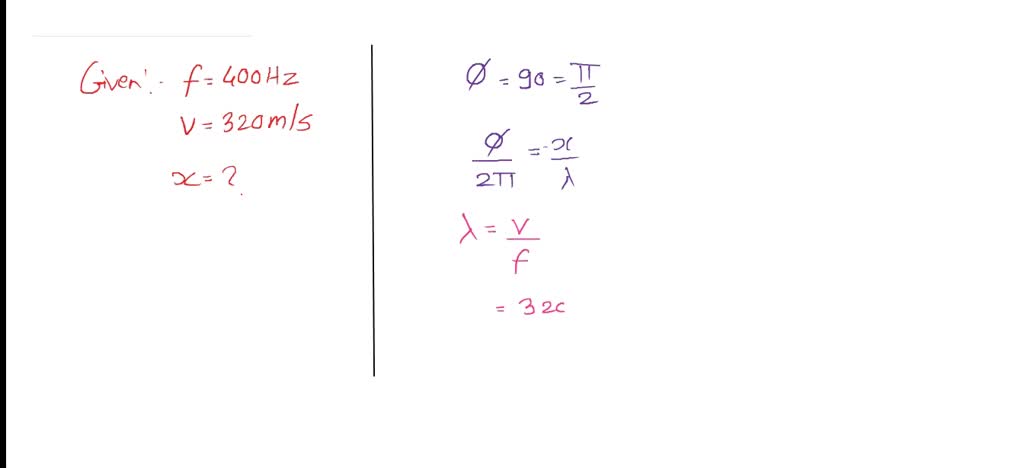 Given:- f = 400Hz
v = 320m/s
x = ?
Ø = 90 = π/2
Ø/2π = x/λ
λ = v/f
= 320